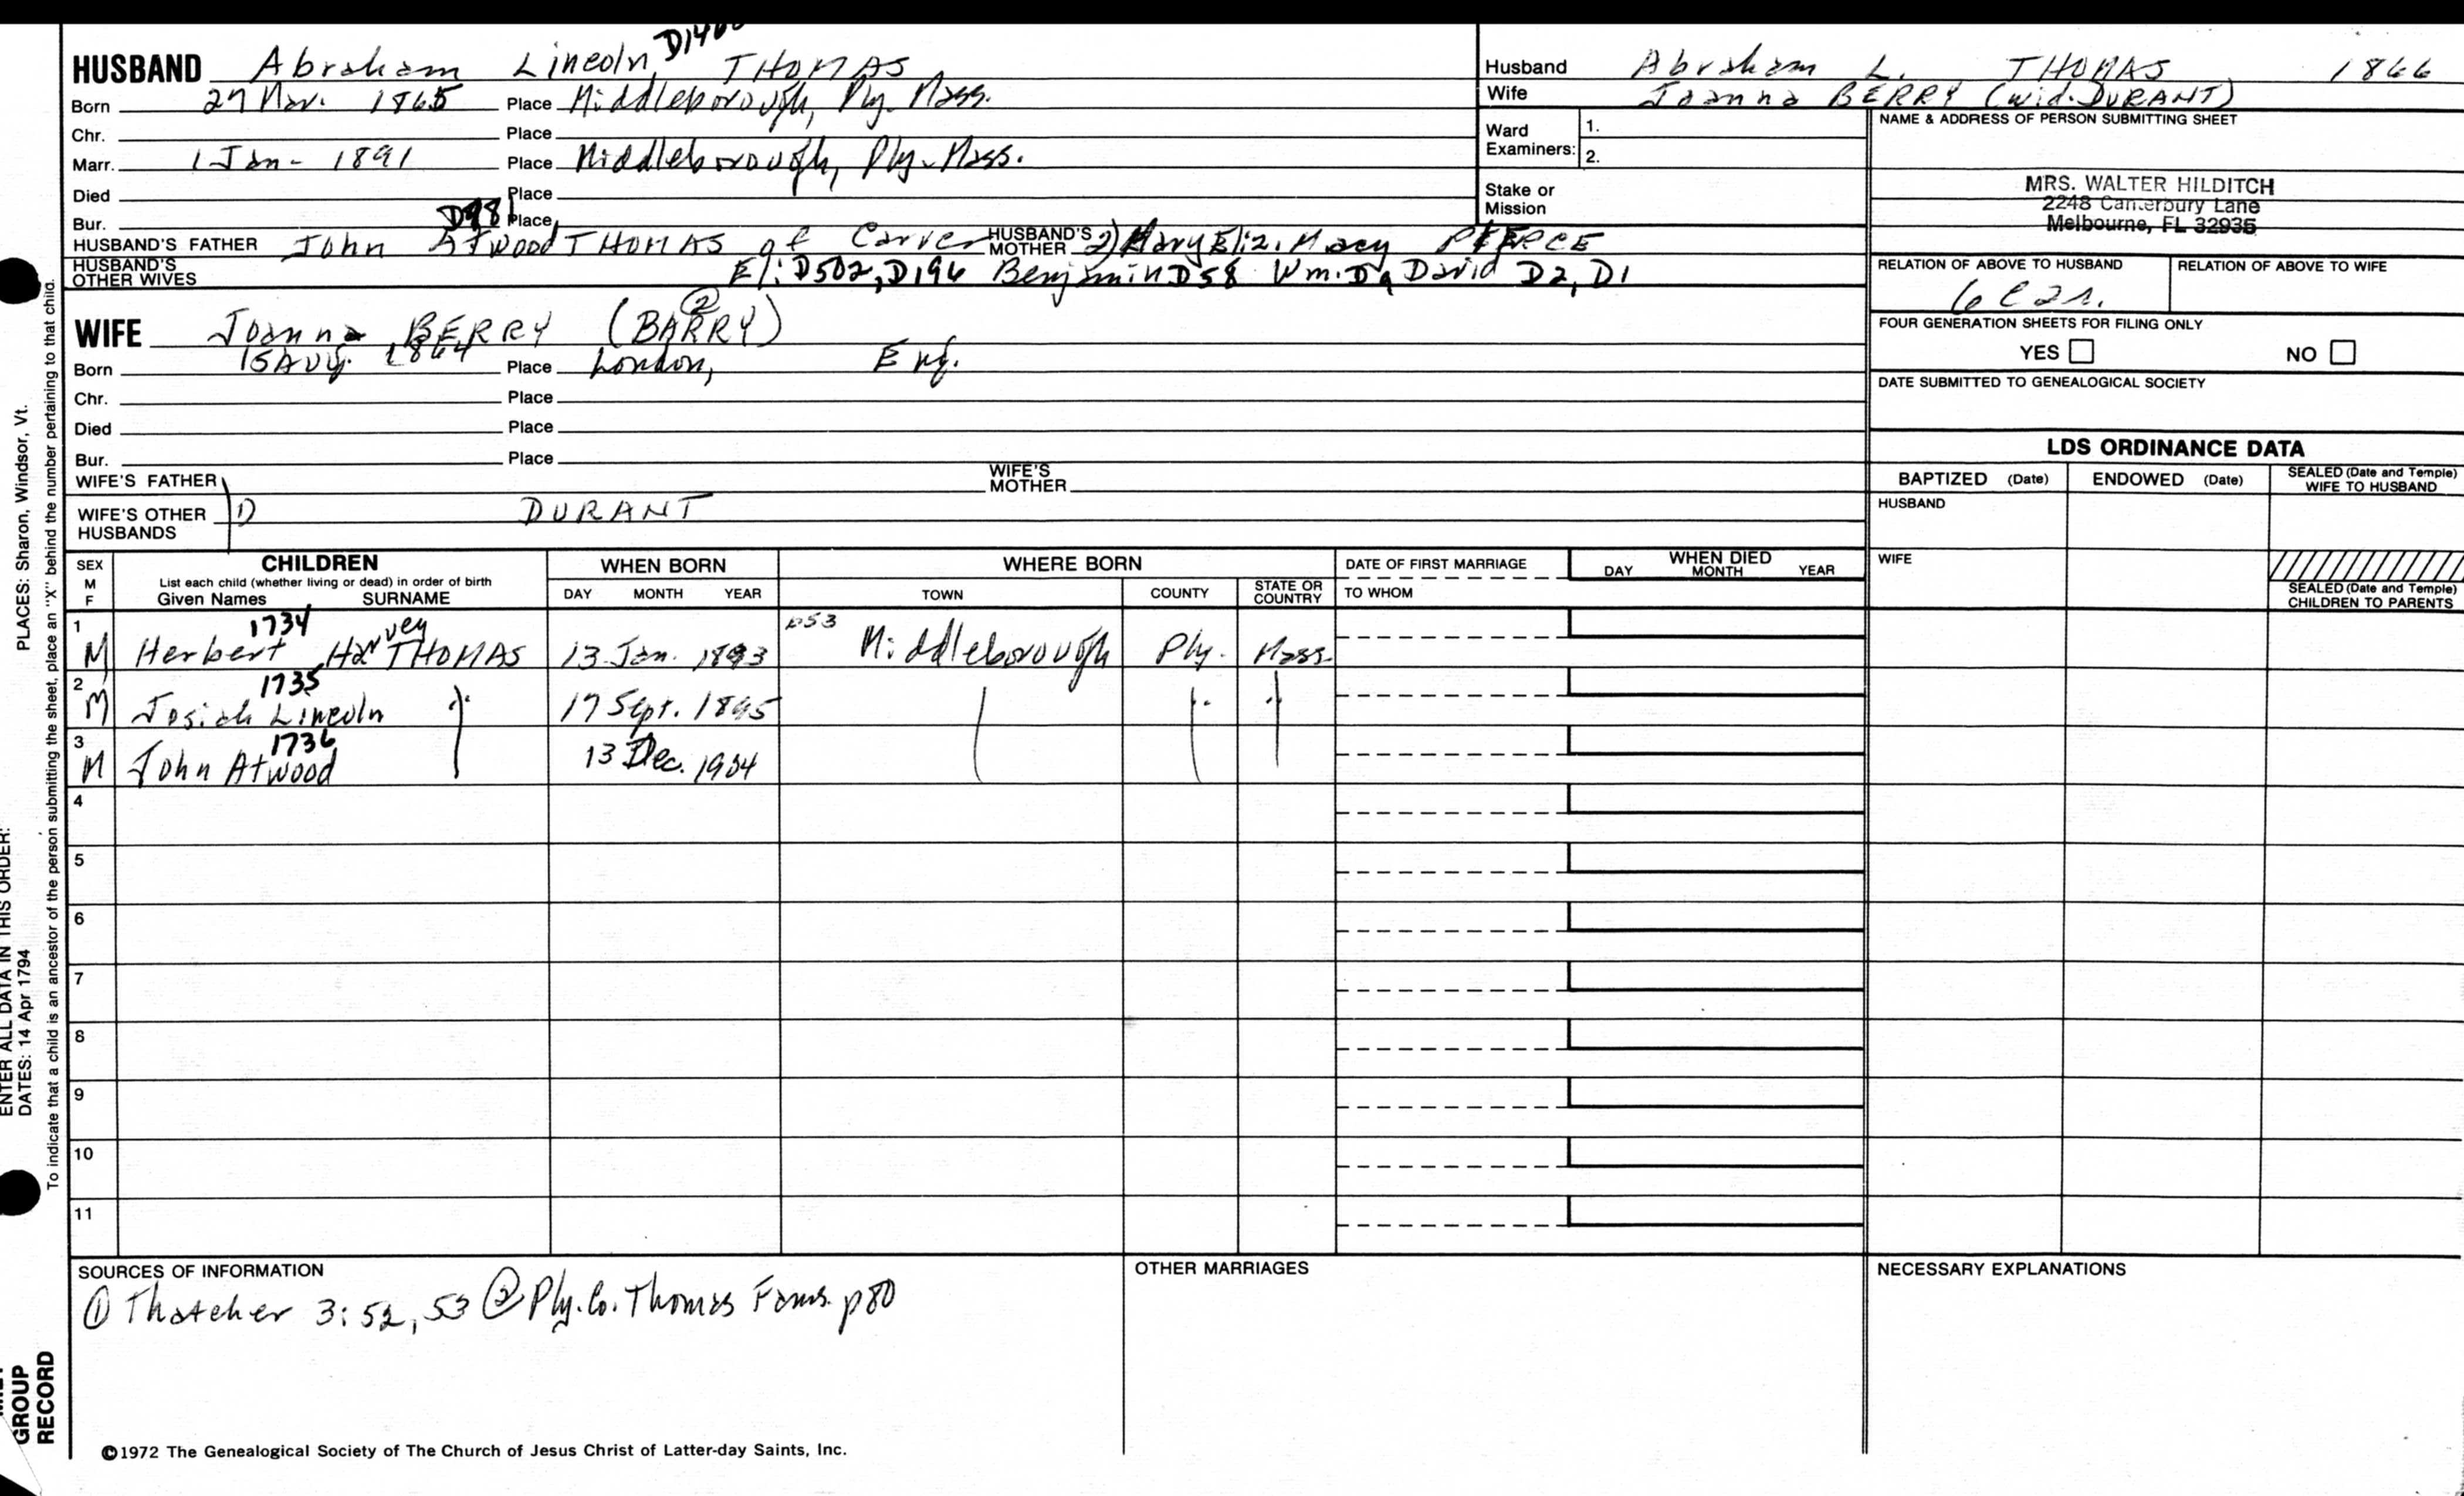 HUSBAND Abraham Lincoln, THOMAS
Born 27 Mar. 1865 Place Middleborough, Ply. Mass.
Chr. Place
Marr. 1 Jan- 1891 Place Middleborough, Ply. Mass.
Died Place
Bur. D981 Place
HUSBAND'S FATHER John Atwood THOMAS of Carver HUSBAND'S MOTHER 2) Mary Eliz. Macy PIERCE
HUSBAND'S OTHER WIVES Eli D502, D196 Benjamin D58 Wm. D9 David D2, D1
Husband Abraham L. THOMAS 1866
Wife Joanna BERRY (wid. DURANT)
Ward Examiners: 1.
2.
Stake or Mission
NAME & ADDRESS OF PERSON SUBMITTING SHEET
MRS. WALTER HILDITCH
2248 Canterbury Lane
Melbourne, FL 32935
RELATION OF ABOVE TO HUSBAND RELATION OF ABOVE TO WIFE
6c2r.
FOUR GENERATION SHEETS FOR FILING ONLY
YES NO
DATE SUBMITTED TO GENEALOGICAL SOCIETY
WIFE Joanna BERRY (BARRY) ②
Born 15 Aug. 1864 Place London, Eng.
Chr. Place
Died Place
Bur. Place
WIFE'S FATHER WIFE'S MOTHER
WIFE'S OTHER HUSBANDS 1) DURANT
LDS ORDINANCE DATA
BAPTIZED (Date) ENDOWED (Date) SEALED (Date and Temple) WIFE TO HUSBAND
HUSBAND
WIFE
SEALED (Date and Temple) CHILDREN TO PARENTS
SEX M F
CHILDREN
List each child (whether living or dead) in order of birth
Given Names SURNAME
WHEN BORN
DAY MONTH YEAR
WHERE BORN
TOWN COUNTY STATE OR COUNTRY
DATE OF FIRST MARRIAGE
TO WHOM
WHEN DIED
DAY MONTH YEAR
1 M 1734 Herbert Harvey THOMAS 13 Jan. 1893 p53 Middleborough Ply. Mass.
2 M 1735 Josiah Lincoln 17 Sept. 1895
3 M 1736 John Atwood 13 Dec. 1904
4
5
6
7
8
9
10
11
SOURCES OF INFORMATION
① Thatcher 3:52, 53 ② Ply. Co. Thomas Fams. p80
OTHER MARRIAGES
NECESSARY EXPLANATIONS
©1972 The Genealogical Society of The Church of Jesus Christ of Latter-day Saints, Inc.
PLACES: Sharon, Windsor, Vt.
To indicate that a child is an ancestor of the person submitting the sheet, place an "X" behind the number pertaining to that child.
ENTER ALL DATA IN THIS ORDER:
DATES: 14 Apr 1794
GROUP
RECORD